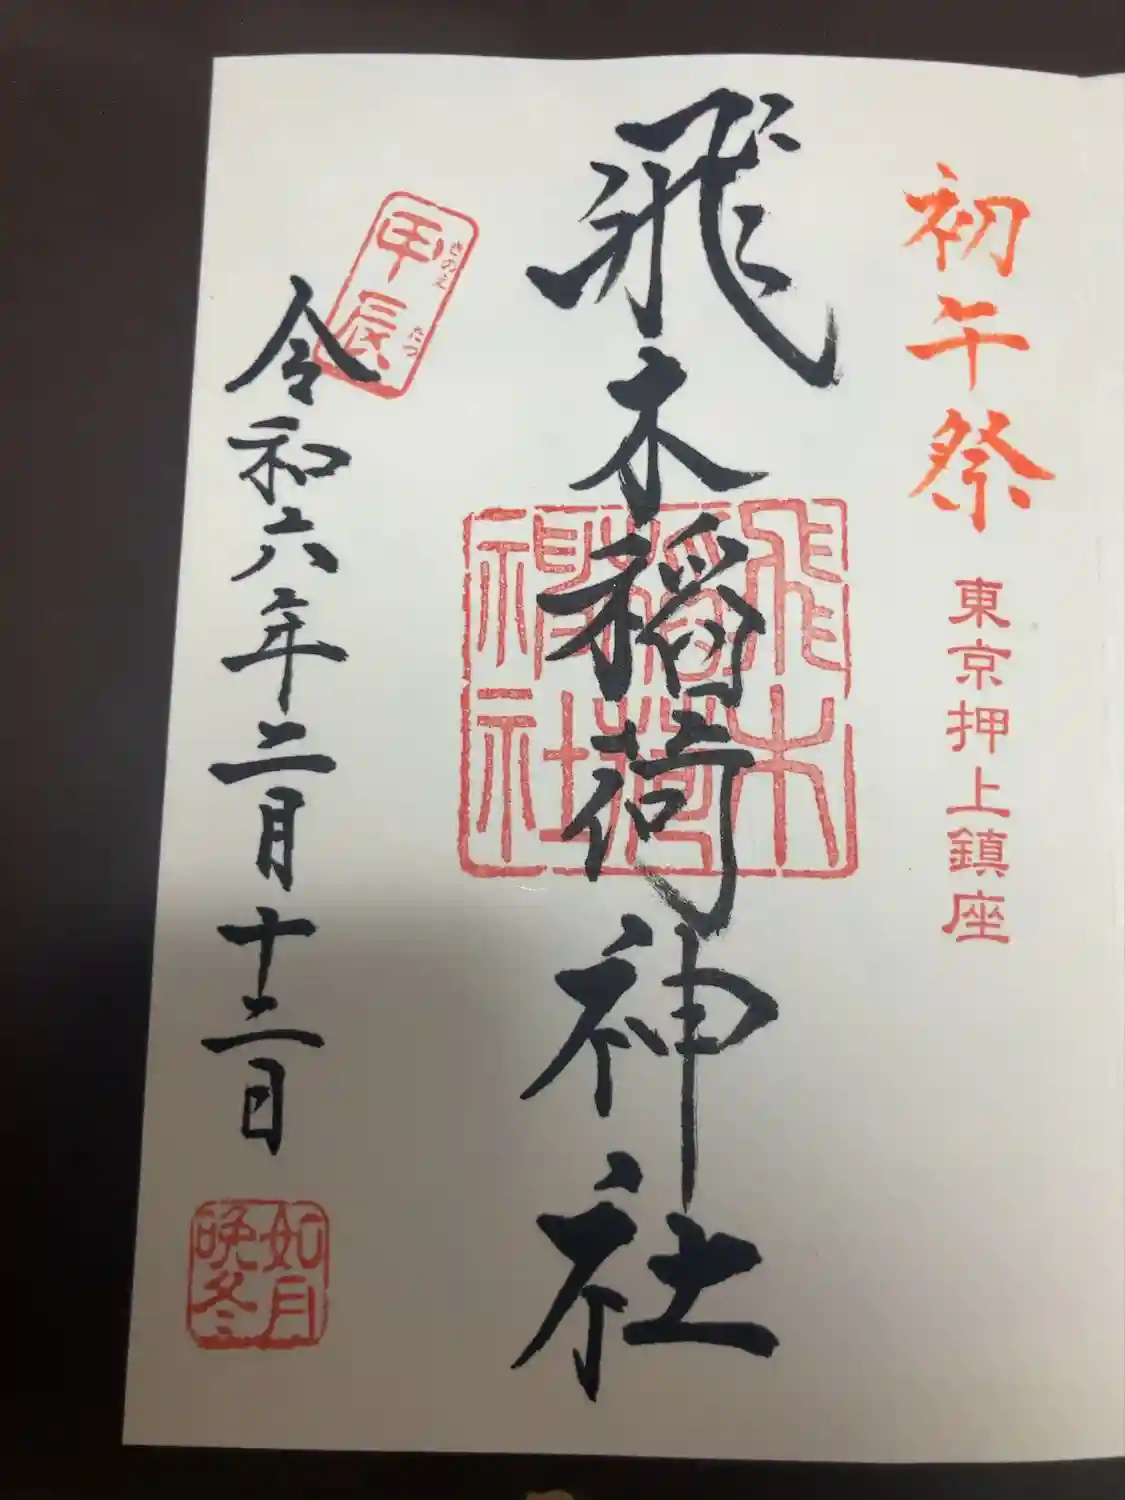 初午祭
東京押上鎮座
飛木稲荷神社
飛木
稲荷
神社
甲辰
きのえ たつ
令和六年二月十二日
如月
晩冬